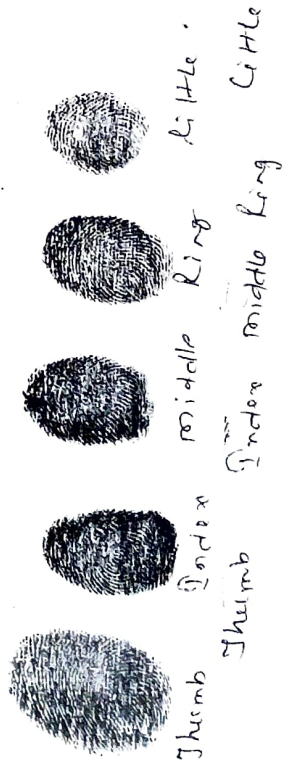 Thumb Index middle Ring Little.
Thumb Index middle Ring Little